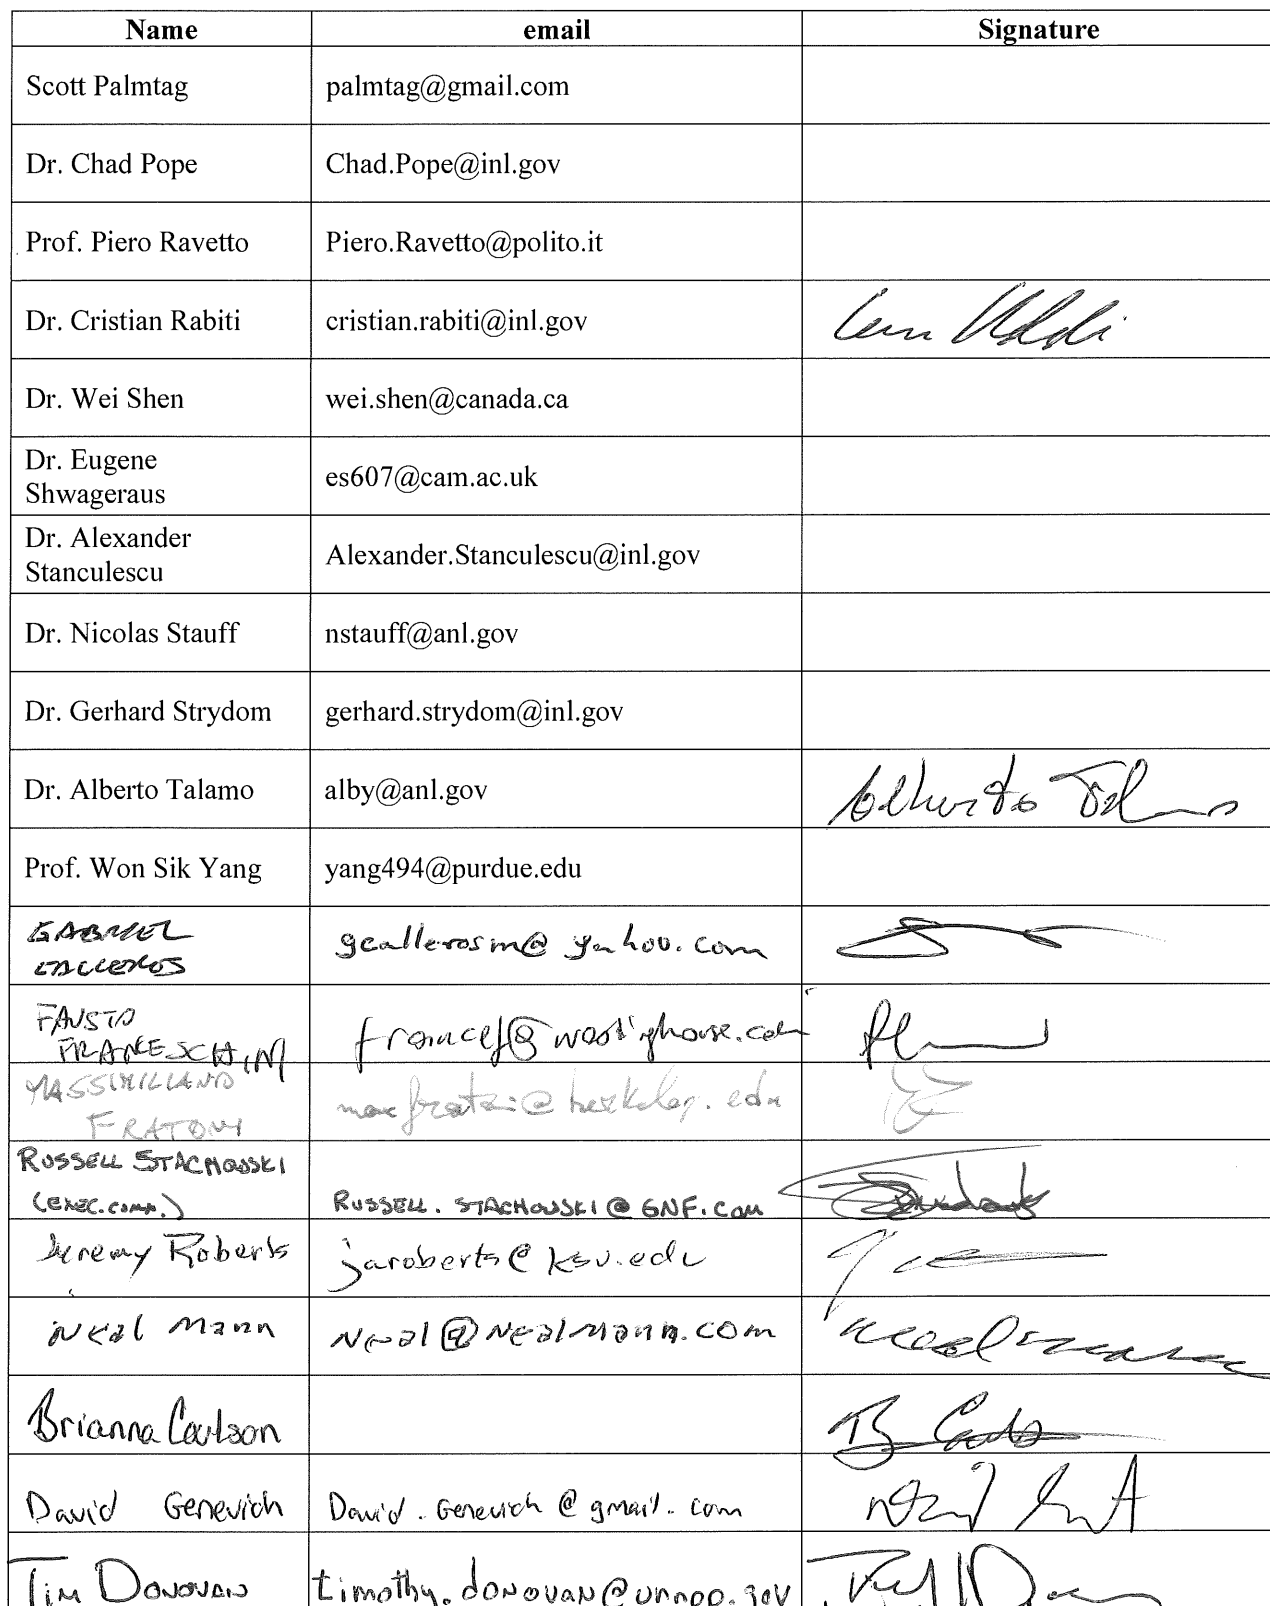 Name email Signature
Scott Palmtag palmtag@gmail.com
Dr. Chad Pope Chad.Pope@inl.gov
Prof. Piero Ravetto Piero.Ravetto@polito.it
Dr. Cristian Rabiti cristian.rabiti@inl.gov
Dr. Wei Shen wei.shen@canada.ca
Dr. Eugene
Shwageraus es607@cam.ac.uk
Dr. Alexander
Stanculescu Alexander.Stanculescu@inl.gov
Dr. Nicolas Stauff nstauff@anl.gov
Dr. Gerhard Strydom gerhard.strydom@inl.gov
Dr. Alberto Talamo alby@anl.gov Alberto Talamo
Prof. Won Sik Yang yang494@purdue.edu
GABRIEL
CALLEROS gcallerosm@yahoo.com
FAUSTO
FRANCESCHINI francef@westinghouse.com
MASSIMILIANO
FRATONI maxfratoni@berkeley.edu
RUSSELL STACHOWSKI
(EXEC.COMM.) RUSSELL.STACHOWSKI@GNF.COM
Jeremy Roberts jaroberts@ksu.edu
Neal Mann Neal@Nealmann.com Neal Mann
Brianna Carlson
David Genevich David.Genevich@gmail.com
Tim Donovan